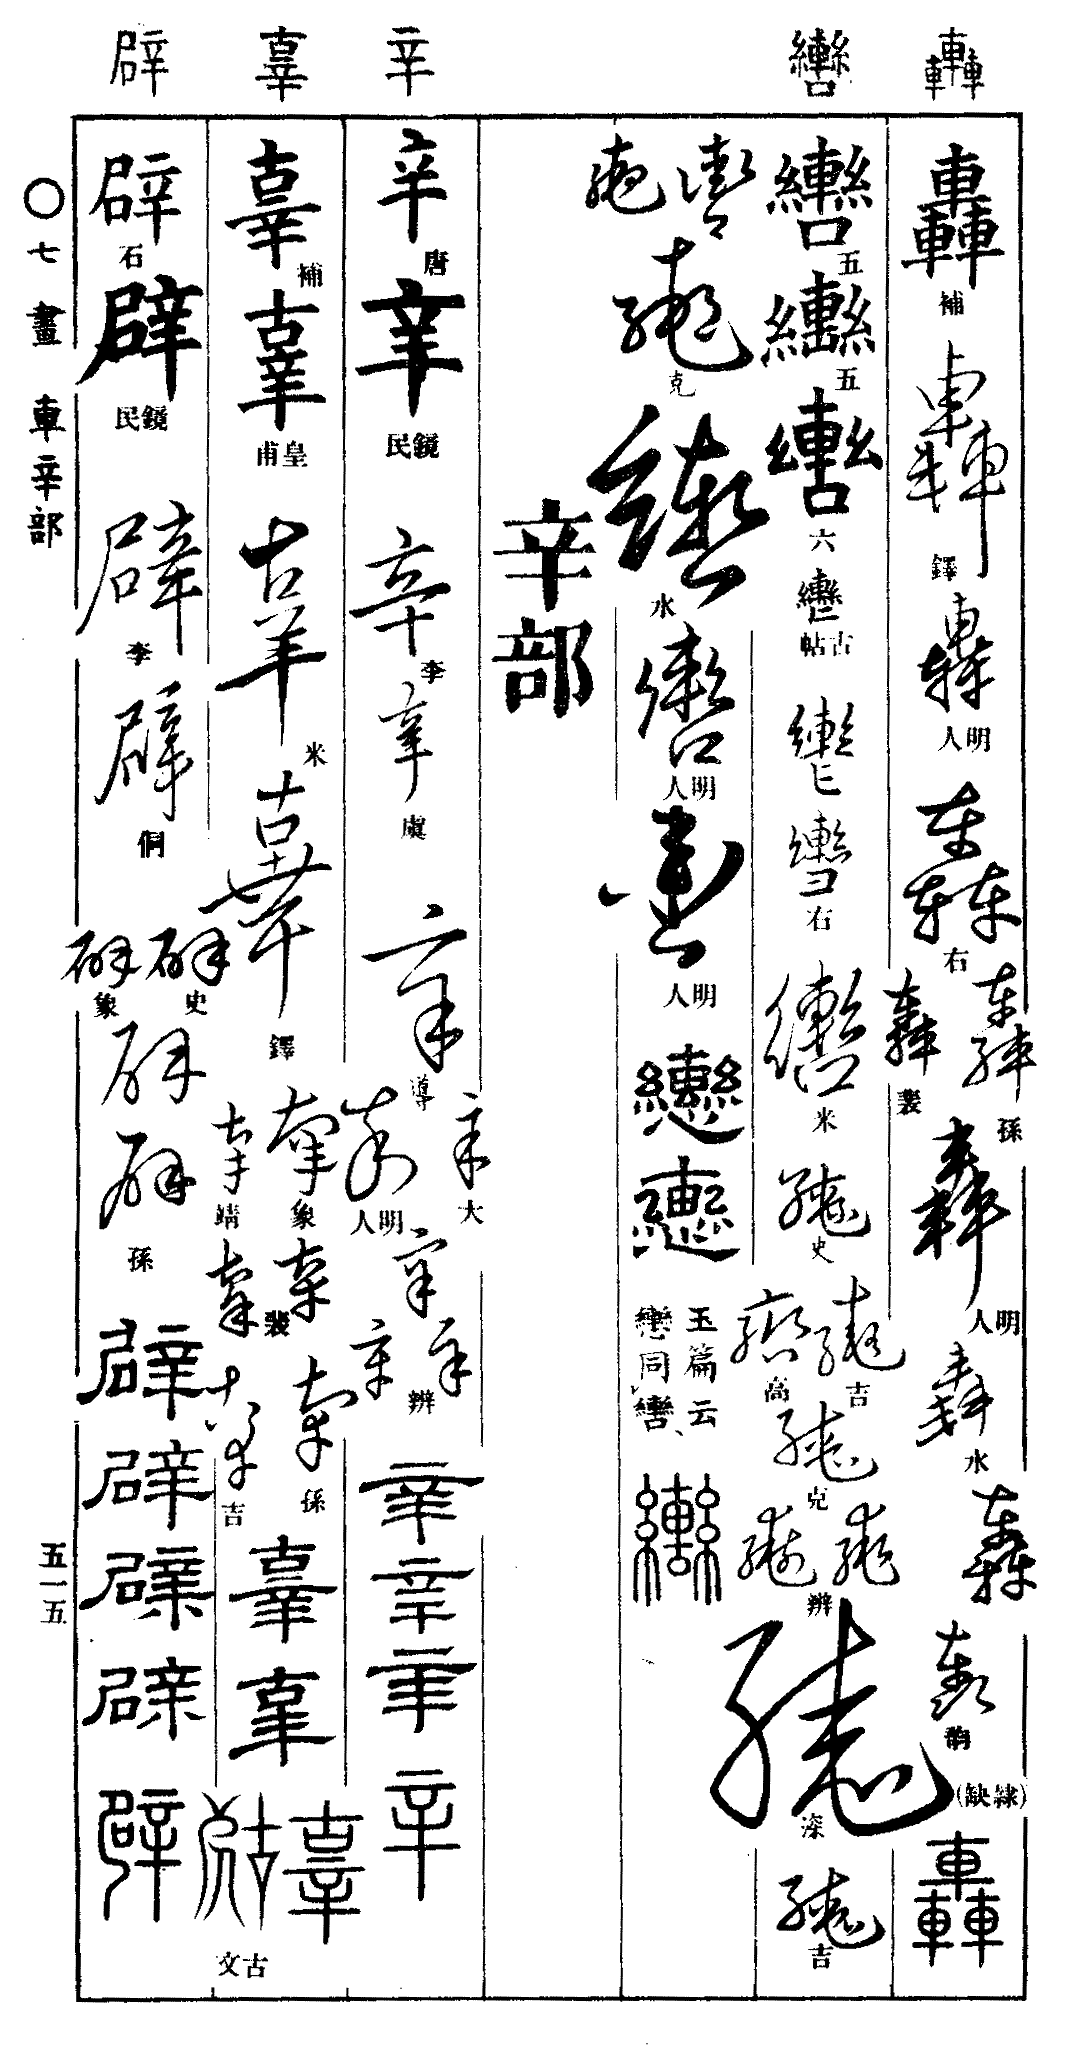 轟
轡
辛
辜
辟
轟
補
轟
鐸
轟
明人
轟
右
轟
孫
轟
裴
轟
明人
轟
水
轟
轟
(隷缺)
轟
轡
五
轡
五
轡
六
轡
古帖
轡
轡
右
轡
米
轡
史
轡
吉
轡
高
轡
克
轡
轡
辨
轡
轡
吉
轡
轡
轡
克
轡
水
轡
明人
轡
明人
轡
轡
玉篇云
轡同轡
轡
辛部
辛
唐
辛
民鏡
辛
李
辛
虞
辛
辛
大
辛
明人
辛
辛
辛
辨
辛
辛
辛
辛
辜
補
辜
皇甫
辜
米
辜
鐸
辜
象
辜
靖
辜
辜
裴
辜
孫
辜
吉
辜
辜
辜
古文
辟
石
辟
民鏡
辟
李
辟
侗
辟
史
辟
象
辟
辟
孫
辟
辟
辟
辟
辟
〇七畫 車辛部
五一五